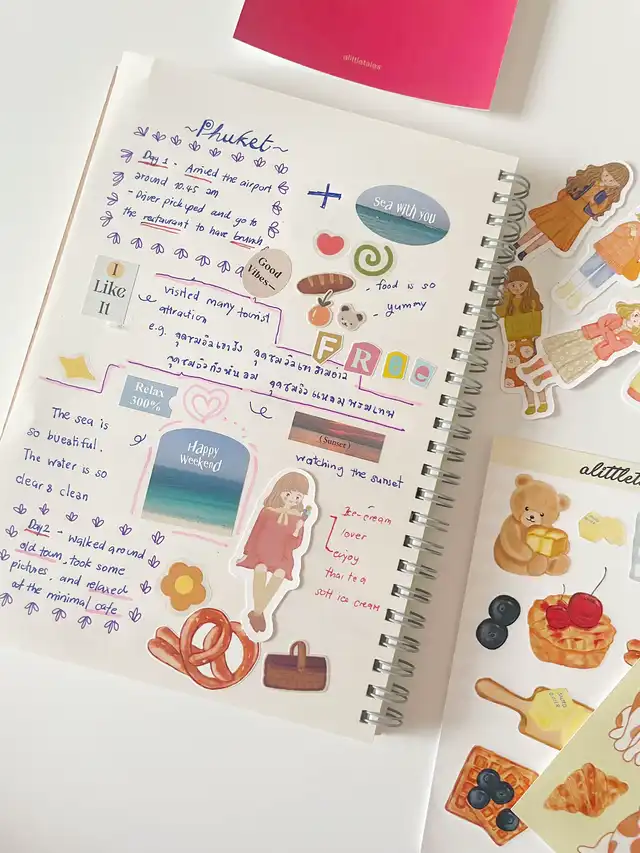 alittletales
~Phuket~
Day 1 - Arrived the airport
around 10.45 am
- Driver pickyed and go to
the restaurant to have brunch
+
Sea with you
Good
Vibes
I
Like
It
- food is so
yummy
visited many tourist
attraction
FREE
e.g. จุดชมวิวเขารัง จุดชมวิวเขาสามอ่าว
จุดชมวิวกังหันลม จุดชมวิวแหลมพรหมเทพ
Relax
300%
(Sunset)
watching the sunset
Happy
Weekend
The sea is
so bueatiful.
The water is so
clear & clean
Ice-cream
lover
enjoy
thai tea
soft ice cream
Day2 - Walked around
old town, took some
pictures, and relaxed
at the minimal cafe